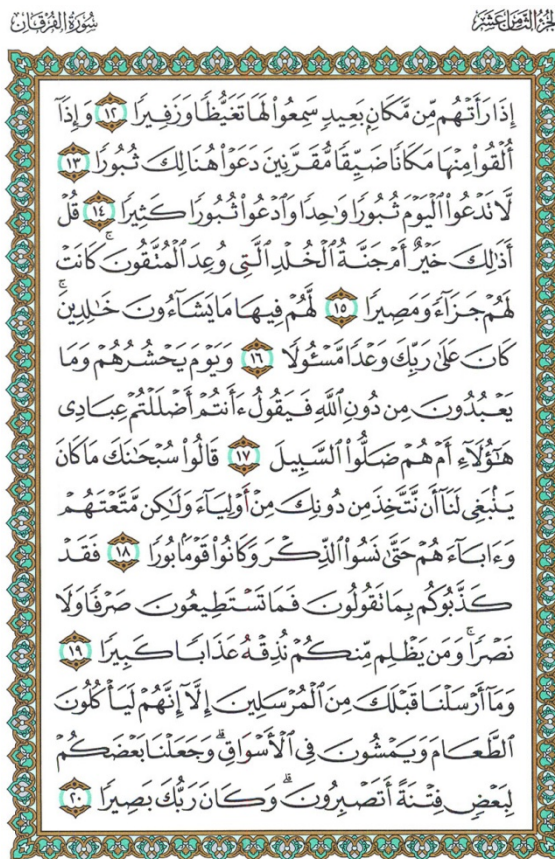 سُورَةُ الفُرْقَان
الجُزْءُ الثَّامِنَ عَشَرَ
إِذَا رَأَتْهُم مِّن مَّكَانٍۭ بَعِيدٍ سَمِعُوا۟ لَهَا تَغَيُّظًا وَزَفِيرًا ١٢ وَإِذَآ
أُلْقُوا۟ مِنْهَا مَكَانًا ضَيِّقًا مُّقَرَّنِينَ دَعَوْا۟ هُنَالِكَ ثُبُورًا ١٣
لَّا تَدْعُوا۟ ٱلْيَوْمَ ثُبُورًا وَٰحِدًا وَٱدْعُوا۟ ثُبُورًا كَثِيرًا ١٤ قُلْ
أَذَٰلِكَ خَيْرٌ أَمْ جَنَّةُ ٱلْخُلْدِ ٱلَّتِى وُعِدَ ٱلْمُتَّقُونَ ۚ كَانَتْ
لَهُمْ جَزَآءً وَمَصِيرًا ١٥ لَّهُمْ فِيهَا مَا يَشَآءُونَ خَٰلِدِينَ ۚ
كَانَ عَلَىٰ رَبِّكَ وَعْدًا مَّسْـُٔولًا ١٦ وَيَوْمَ يَحْشُرُهُمْ وَمَا
يَعْبُدُونَ مِن دُونِ ٱللَّهِ فَيَقُولُ ءَأَنتُمْ أَضْلَلْتُمْ عِبَادِى
هَٰٓؤُلَآءِ أَمْ هُمْ ضَلُّوا۟ ٱلسَّبِيلَ ١٧ قَالُوا۟ سُبْحَٰنَكَ مَا كَانَ
يَنۢبَغِى لَنَآ أَن نَّتَّخِذَ مِن دُونِكَ مِنْ أَوْلِيَآءَ وَلَٰكِن مَّتَّعْتَهُمْ
وَءَابَآءَهُمْ حَتَّىٰ نَسُوا۟ ٱلذِّكْرَ وَكَانُوا۟ قَوْمًۢا بُورًا ١٨ فَقَدْ
كَذَّبُوكُم بِمَا تَقُولُونَ فَمَا تَسْتَطِيعُونَ صَرْفًا وَلَا
نَصْرًا ۚ وَمَن يَظْلِم مِّنكُمْ نُذِقْهُ عَذَابًا كَبِيرًا ١٩
وَمَآ أَرْسَلْنَا قَبْلَكَ مِنَ ٱلْمُرْسَلِينَ إِلَّآ إِنَّهُمْ لَيَأْكُلُونَ
ٱلطَّعَامَ وَيَمْشُونَ فِى ٱلْأَسْوَاقِ ۗ وَجَعَلْنَا بَعْضَكُمْ
لِبَعْضٍ فِتْنَةً أَتَصْبِرُونَ ۗ وَكَانَ رَبُّكَ بَصِيرًا ٢٠